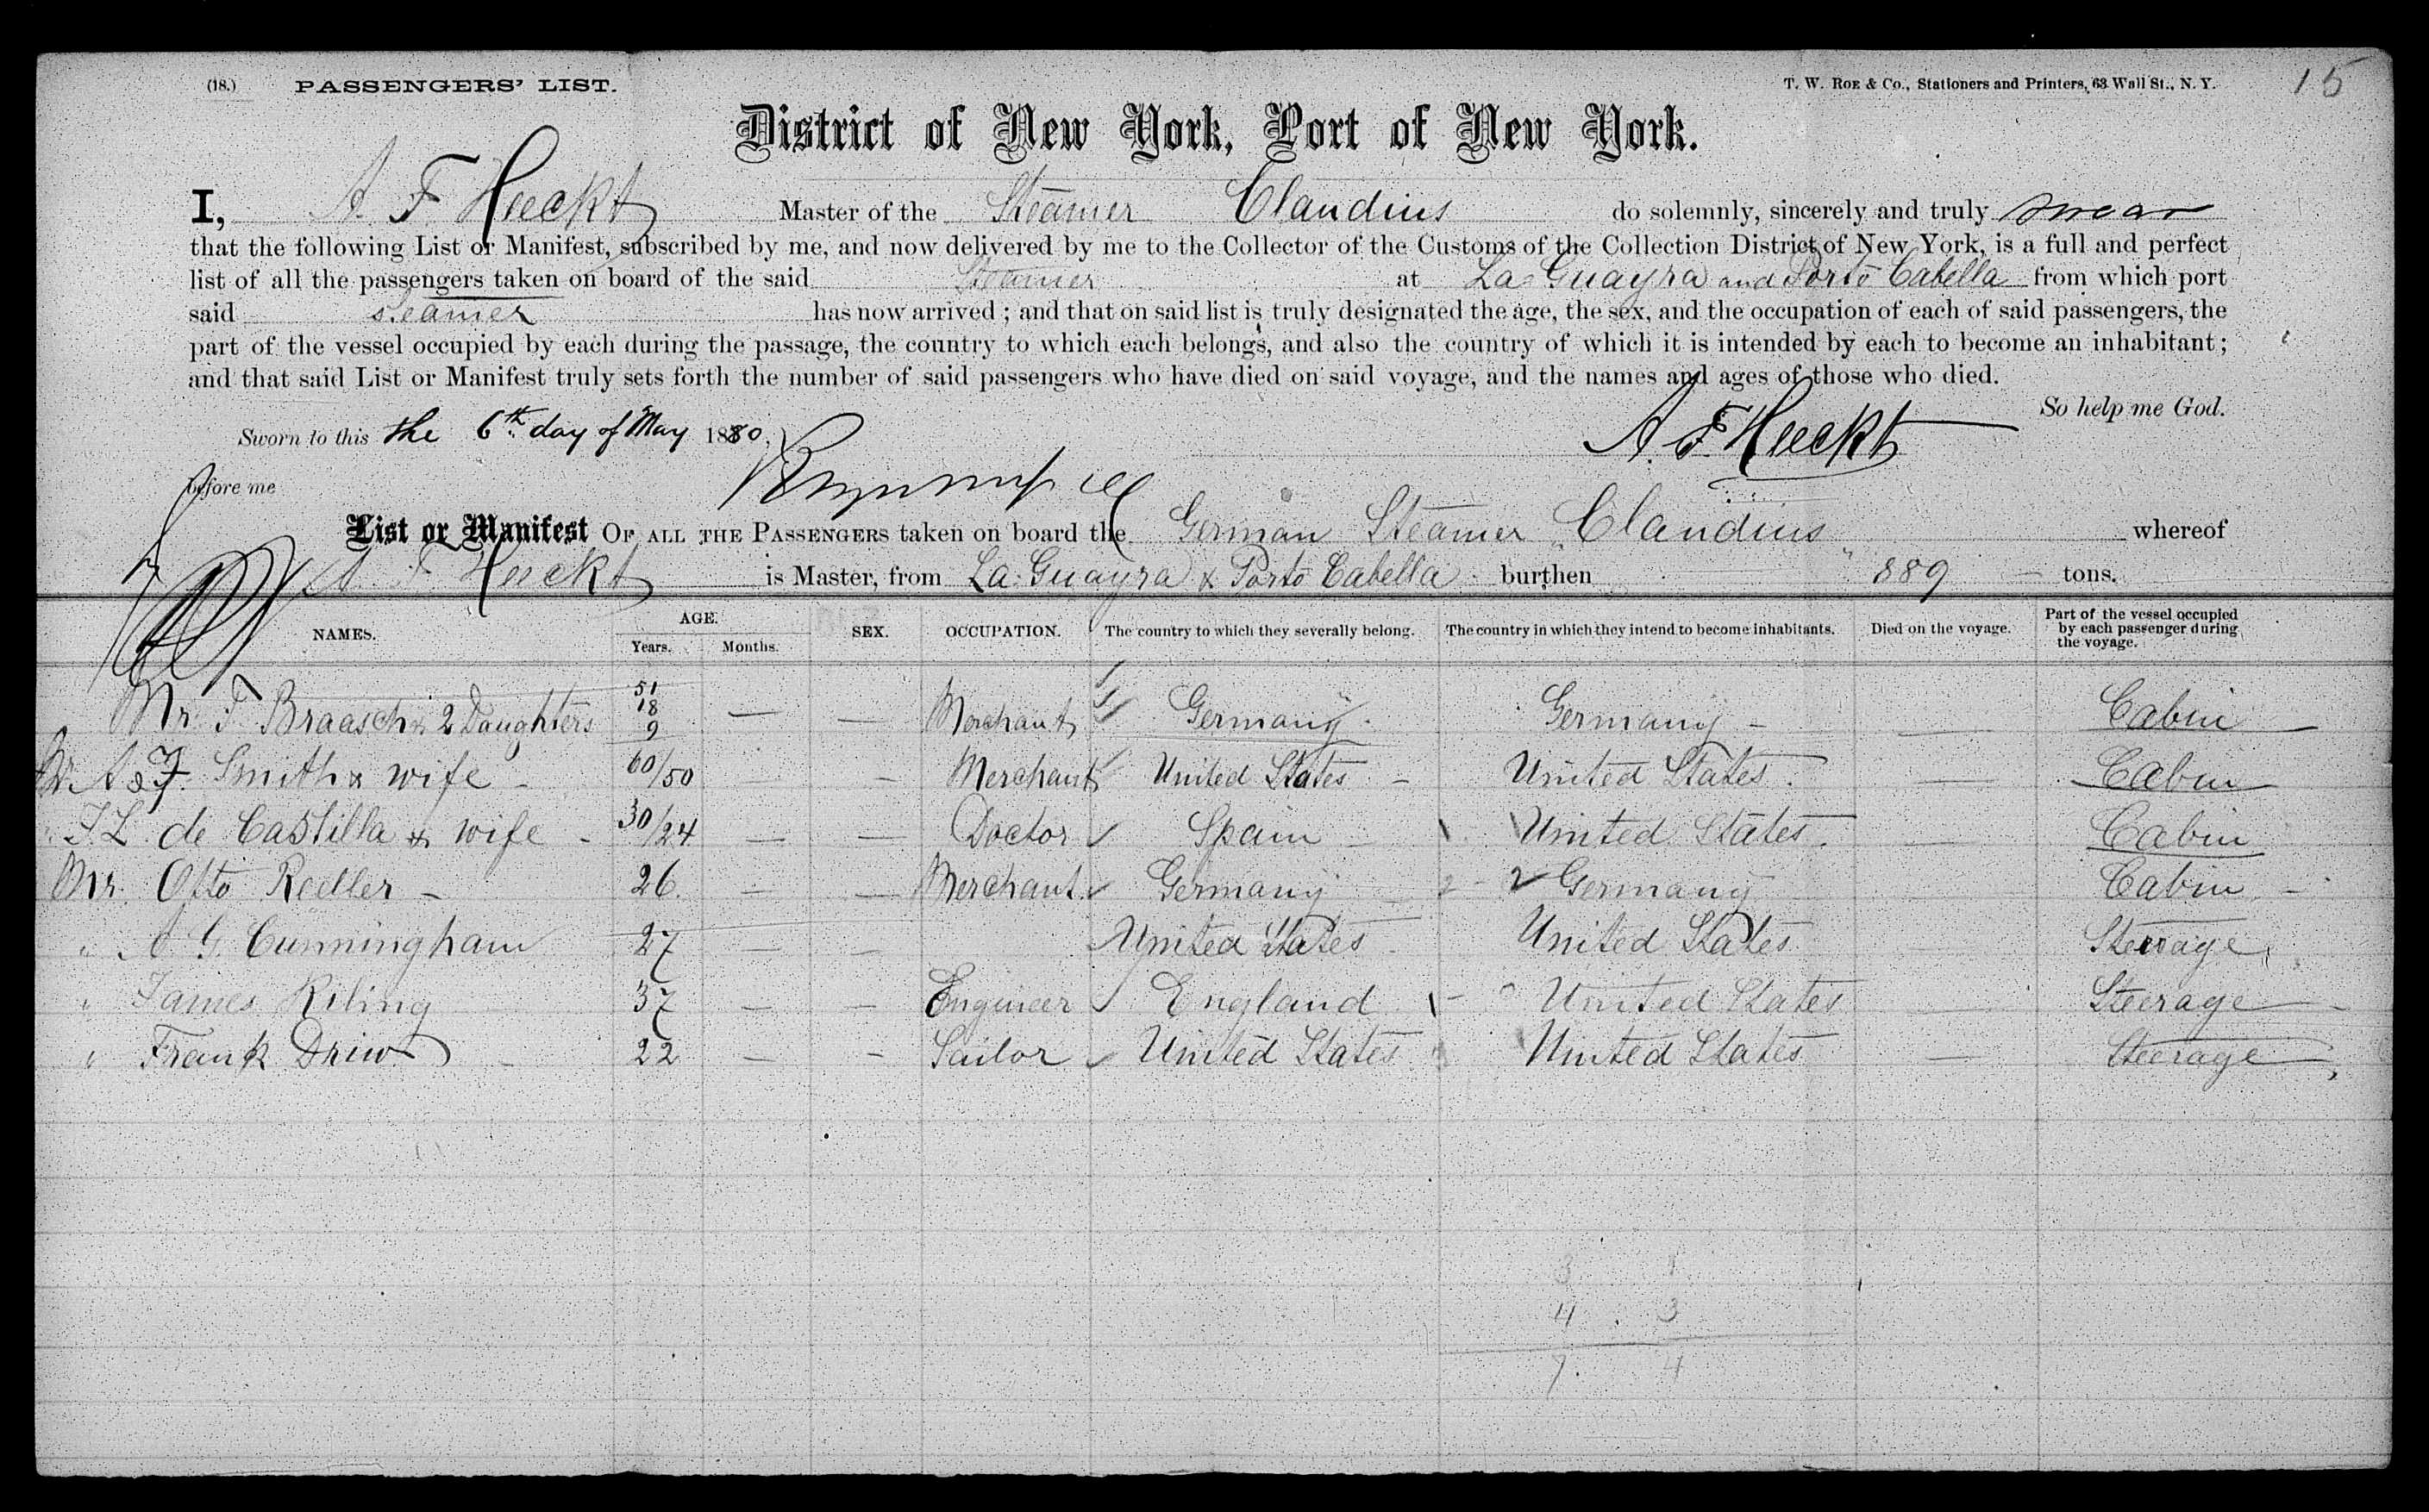 (18.) PASSENGERS' LIST. T. W. ROE & CO., Stationers and Printers, 63 Wall St., N. Y. 15
District of New York, Port of New York.
I, A. F. Heeckt Master of the Steamer Claudius do solemnly, sincerely and truly swear
that the following List or Manifest, subscribed by me, and now delivered by me to the Collector of the Customs of the Collection District of New York, is a full and perfect
list of all the passengers taken on board of the said Steamer at La Guayra and Porto Cabella from which port
said steamer has now arrived; and that on said list is truly designated the age, the sex, and the occupation of each of said passengers, the
part of the vessel occupied by each during the passage, the country to which each belongs, and also the country of which it is intended by each to become an inhabitant;
and that said List or Manifest truly sets forth the number of said passengers who have died on said voyage, and the names and ages of those who died.
So help me God.
Sworn to this the 6th day of May 1880. A. F. Heeckt
before me
List or Manifest OF ALL THE PASSENGERS taken on board the German Steamer "Claudius" whereof
A. F. Heeckt is Master, from La Guayra & Porto Cabella burthen 889 tons.
NAMES. AGE. Years. Months. SEX. OCCUPATION. The country to which they severally belong. The country in which they intend to become inhabitants. Died on the voyage. Part of the vessel occupied by each passenger during the voyage.
Mr. F. Braasch & 2 Daughters 51 18 9 — — Merchant Germany Germany — Cabin
Mr. A & F. Smith & wife 60/50 — — Merchant United States United States — Cabin
" F. L. de Castilla & wife 30/24 — — Doctor Spain United States — Cabin
Mr. Otto Redler 26 — — Merchant Germany Germany — Cabin
" A. G. Cunningham 27 — — United States United States — Steerage
" James Riling 37 — — Engineer England United States — Steerage
" Frank Driw 22 — — Sailor United States United States — Steerage
3 1
4 3
7 4